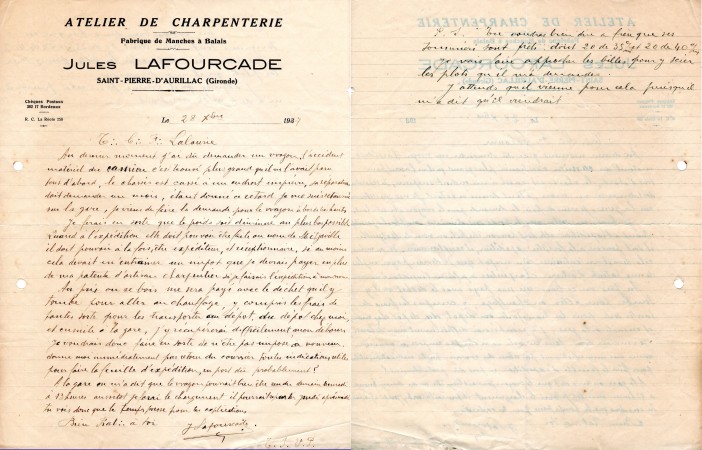 ATELIER DE CHARPENTERIE
Fabrique de Manches à Balais
JULES LAFOURCADE
SAINT-PIERRE-D'AURILLAC (Gironde)
Chèques Postaux
Bordeaux
R. C. La Réole
Le 28 Xbre 193
T∴ C∴ F∴
Au dernier moment j'ai dû demander un wagon, l'accident
matériel du camion s'est trouvé plus grand qu'il n'avait paru
tout d'abord, le chassis est cassé à un endroit, la réparation
doit demander un mois, étant donné ce retard je me suis
sur la gare, je viens de faire la demande pour le wagon à
Je ferai en sorte que le poids soit diminué au plus bas possible
Quant à l'expédition elle doit pouvoir être faite au nom de
il doit pouvoir à la fois être expéditeur, et réceptionnaire, si au moins
cela devait m'entrainer un impot que je devrais payer en plus
de ma patente d'artisan charpentier si je faisais l'expédition à mon nom
Au prix où ce bois me sera payé avec le dechet qu'il y
tombe pour aller au chauffage, y compris les frais de
toutes sortes pour les transporter au dépot, du dépot chez moi,
et ensuite à la gare, je récupérerai difficilement mon débours
Je voudrais donc faire en sorte de n'être pas imposé à nouveau.
donne moi immédiatement par retour du courrier toutes indications utiles
pour faire la feuille d'expédition, en port dû probablement?
A la gare on m'a dit que le wagon pourrait bien être rendu demain
à 13 heures aussitot je ferai le chargement il pourrait jeudi
tu vois donc que le temps presse pour les explications
Bien Frat∴ à toi J Lafourcade
P. S. Tu voudras bien dire à que ses
sont prêts. dont 20 de 35 et 20 de 40
Je vais faire approcher les billes pour y scier
les plots qu'il m'a demandés.
J'attends qu'il vienne pour cela puisqu'il
m'a dit qu'il viendrait